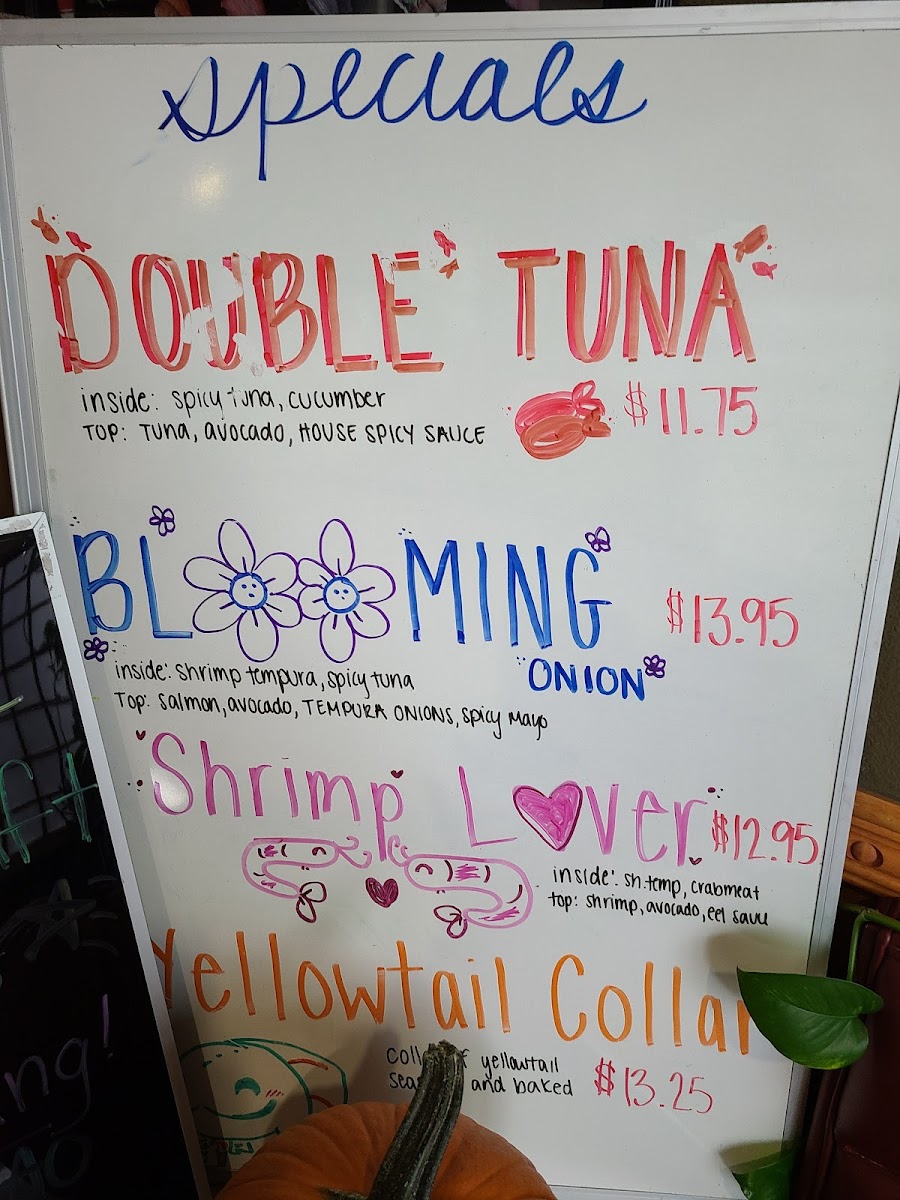 specials
DOUBLE TUNA
inside: spicy tuna, cucumber
TOP: TUNA, avocado, HOUSE SPICY SAUCE
$11.75
BLOOMING
ONION
$13.95
inside: shrimp tempura, spicy tuna
TOP: salmon, avocado, TEMPURA ONIONS, spicy mayo
Shrimp Lover
$12.95
inside: sh.temp, crabmeat
top: shrimp, avocado, eel sauce
Yellowtail Collar
yellowtail
and baked
$13.25